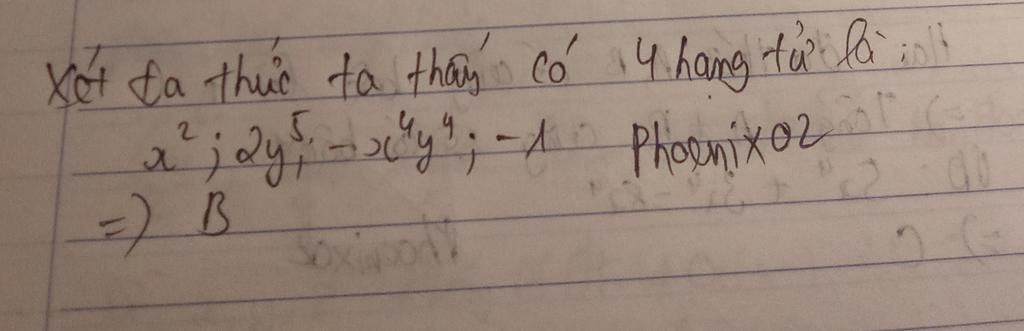 Xét đa thức ta thấy có 4 hạng tử là:
x²; 2y⁵; -x⁴y⁴; -1 Phoenix02
=) B